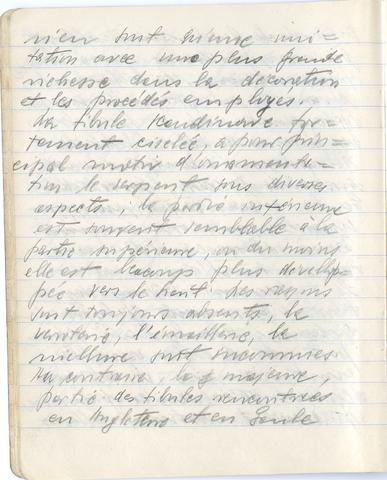 n'en sont même imi=
tation avec une plus grande
richesse dans la décoration
et les procédés employés.
La fibule scandinave for=
tement ciselée, a pour prin=
cipal motif d'ornementa=
tion le serpent sous diverses
aspects; la partie inférieure
est souvent semblable à la
partie supérieure, ou du moins
elle est beaucoup plus dévelop=
pée vers le haut. Les rayons
sont toujours absents, la
verroterie, l'émaillerie, la
niellure sont inconnues.
Au contraire, la majeure,
partie des fibules rencontrées
en Angleterre et en Gaule